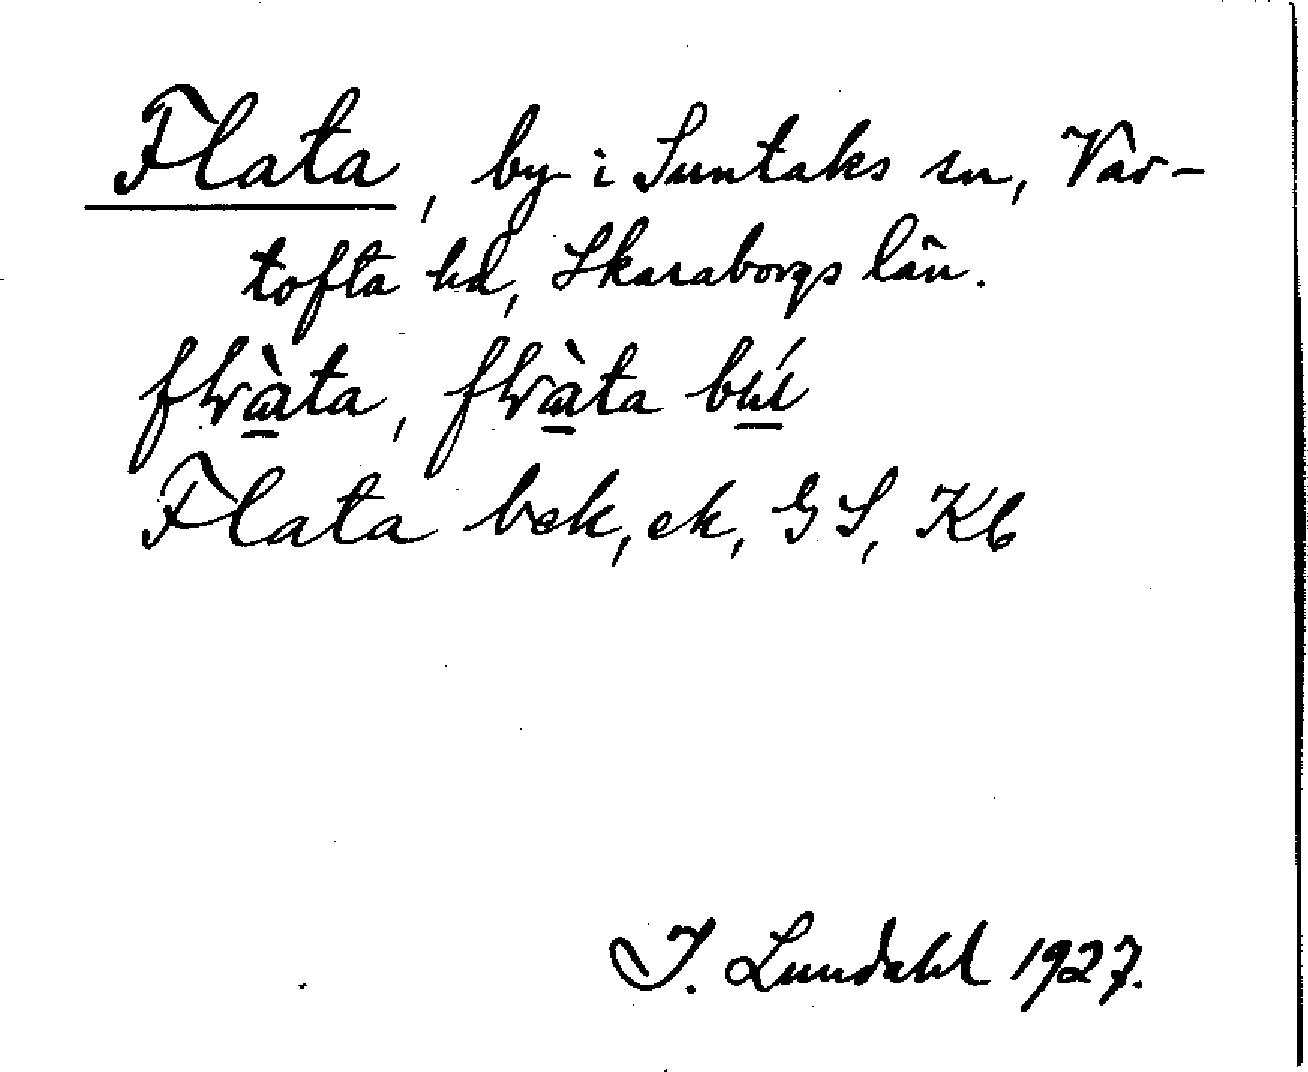 Flata, by i Suntaks sn, Var-
tofta hd, Skaraborgs län.
flàta, flàta
Flata bek, ek, GS, Kb
I. Lundahl 1927.